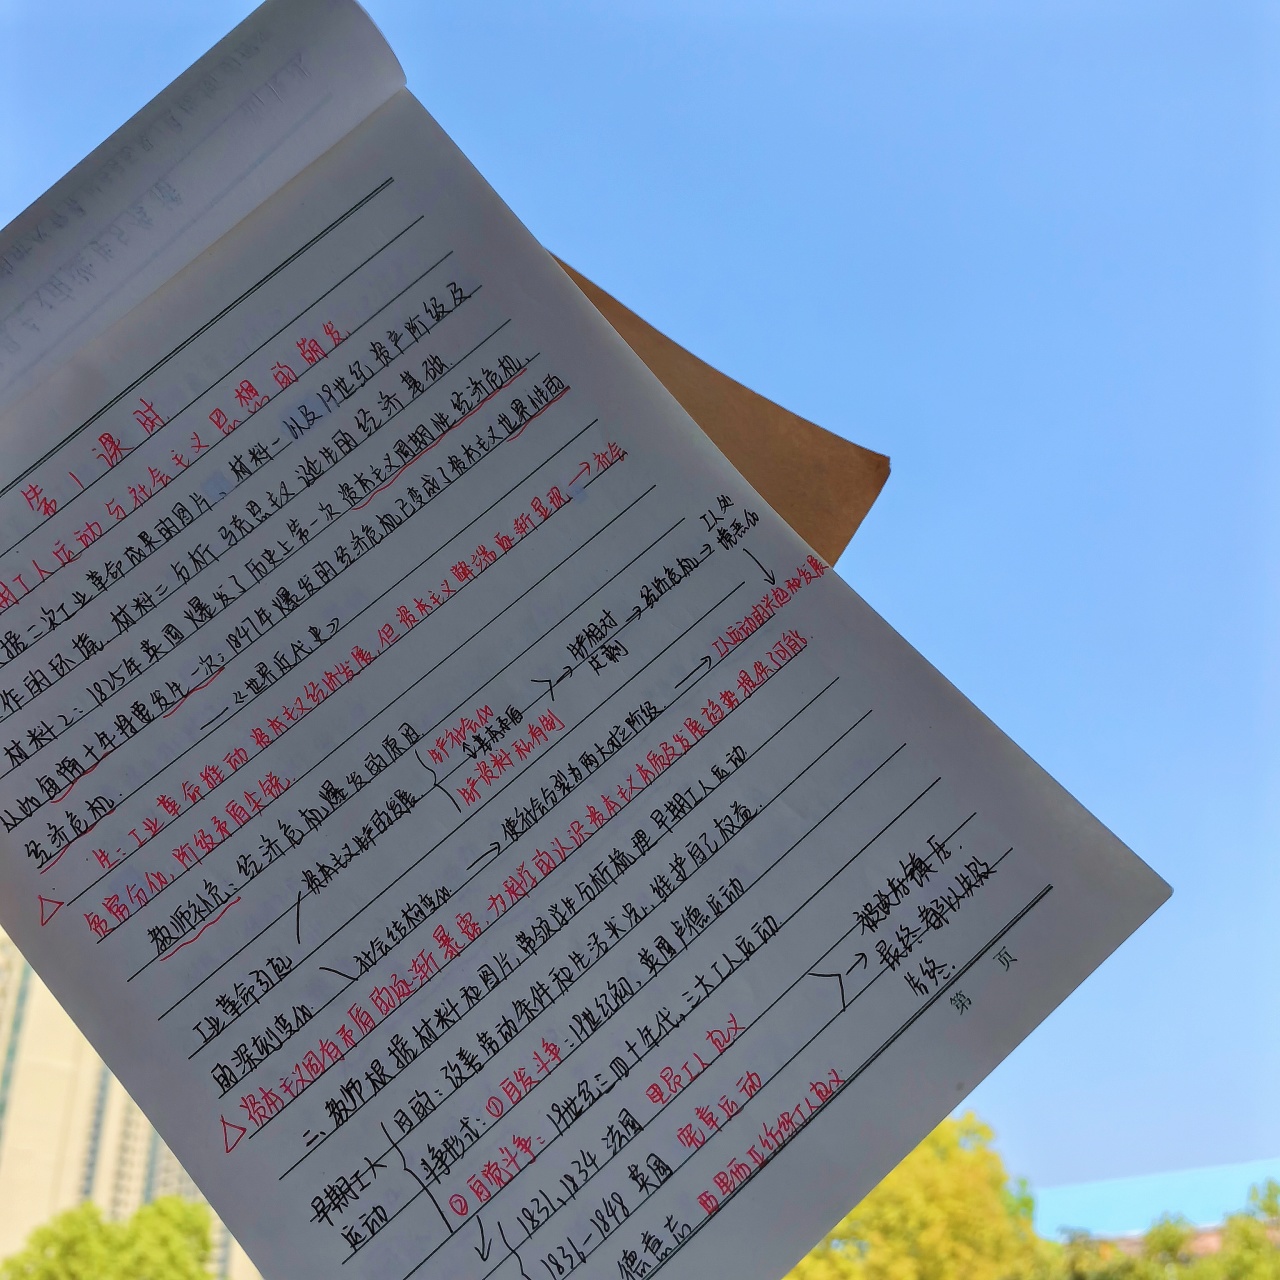 第1课时
期工人运动与社会主义思想的萌发.
据二次工业革命成果的图片、材料一以及19世纪资产阶级及
作的环境, 材料二分析马克思主义诞生的经济基础.
材料2: 1825年英国爆发了历史上第一次资本主义周期性经济危机,
从此每隔十年将要发生一次; 1847年爆发的经济危机已变成了资本主义世界性的
经济危机. ——《世界近代史》
△ 生: 工业革命推动资本主义经济发展, 但资本主义弊端日渐显现 → 社会
贫富分化, 阶级矛盾尖锐.
教师补充: 经济危机爆发的原因
工业革命引起的深刻变化
资本主义生产的发展
生产社会化
基本矛盾
生产资料私有制
→ 生产相对过剩 → 经济危机 → 工人处境恶化
社会结构变化 → 使社会分裂为两大对立阶级. → 工人运动的兴起和发展
△ 资本主义固有矛盾的逐渐暴露, 为科学的认识资本主义本质及发展趋势提供了可能.
二. 教师根据材料和图片, 带领学生分析梳理早期工人运动
早期工人运动
目的: 改善劳动条件和生活状况, 维护自己权益.
斗争形式: ①自发斗争: 19世纪初, 英国卢德运动
②自觉斗争: 19世纪三四十年代, 三大工人运动
1831、1834 法国 里昂工人起义
1836-1848 英国 宪章运动
德意志 西里西亚纺织工人起义
→ 被政府镇压.
最终皆以失败
告终.
第 页